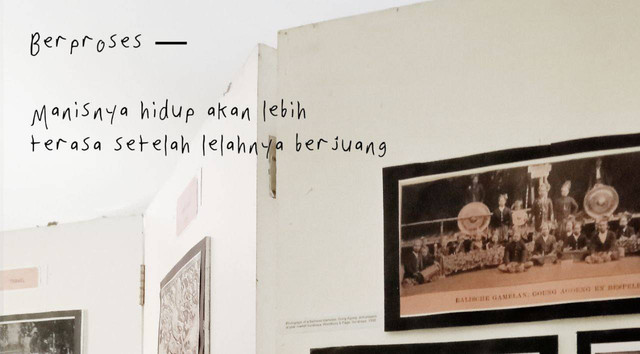 Berproses —
Manisnya hidup akan lebih
terasa setelah lelahnya berjuang
BALISCHE GAMELAN: GOUNG AGOENG EN BESPELE